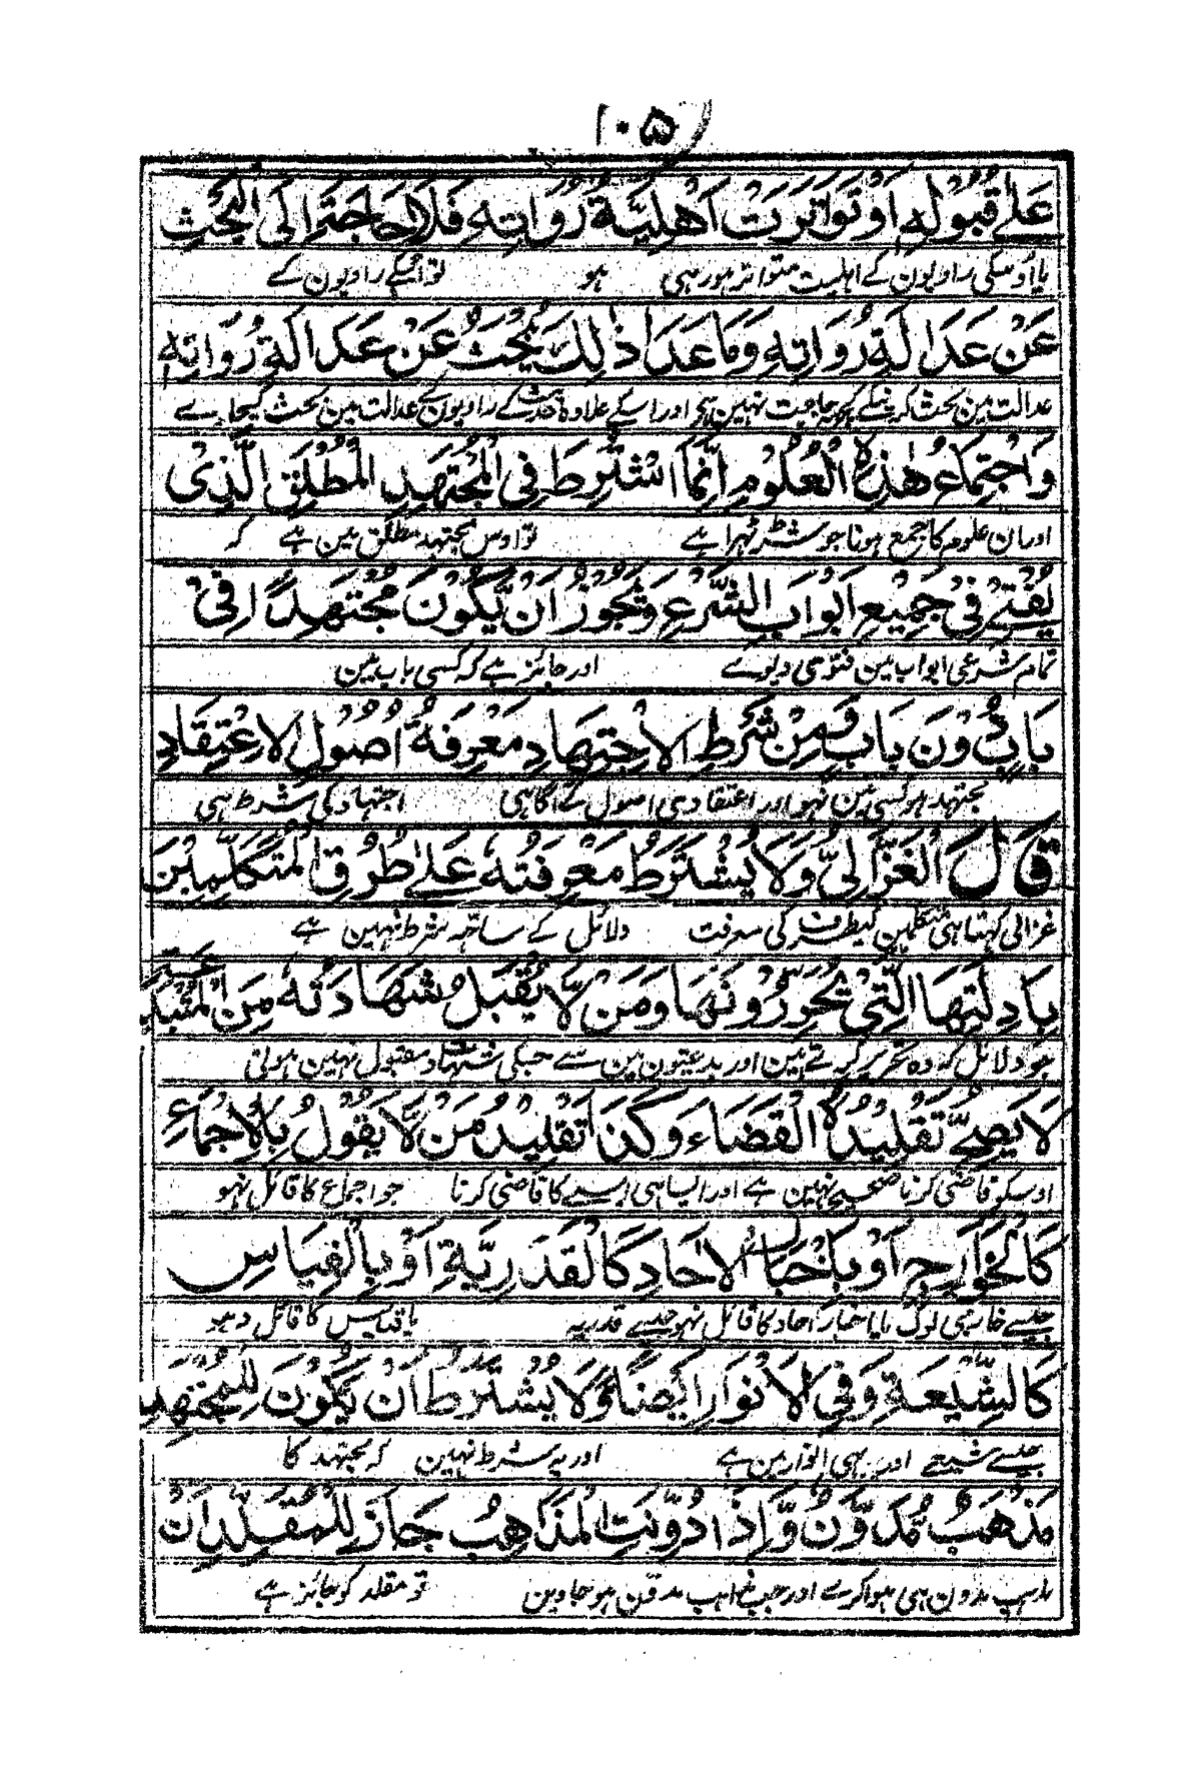 ۱۰۵
عَلٰى قُبُوْلِهٖ اَوْ تَوَاتَرَتْ اَهْلِيَّةُ رُوَاتِهٖ فَلَا حَاجَةَ اِلَى الْبَحْثِ
یا اوسکی راویون کے اہلیت متواتر ہو رہی ہو تو اُسکے راویون کے
عَنْ عَدَالَةِ رُوَاتِهٖ وَمَا عَدَا ذٰلِكَ يُبْحَثُ عَنْ عَدَالَةِ رُوَاتِهٖ
عدالت مین بحث کرنیکے کچھ حاجت نہین ہی اور اسکے علاوہ حدیث کے راویون کے عدالت مین بحث کیجاوے
وَاجْتِمَاعُ هٰذِهِ الْعُلُوْمِ اِنَّمَا اشْتُرِطَ فِى الْمُجْتَهِدِ الْمُطْلَقِ الَّذِىْ
اور ان علوم کا جمع ہونا جو شرط ٹہرا ہے تو اوس مجتہد مطلق مین ہے کہ
يُفْتِىْ فِىْ جَمِيْعِ اَبْوَابِ الشَّرْعِ وَيَجُوْزُ اَنْ يَّكُوْنَ مُجْتَهِدًا فِىْ
تمام شرعی ابواب مین فتوی دیوے اور جائز ہے کہ کسی باب مین
بَابٍ دُوْنَ بَابٍ وَمِنْ شَرْطِ الْاِجْتِهَادِ مَعْرِفَةُ اُصُوْلِ الْاِعْتِقَادِ
مجتہد ہو کسی مین نہو اور اعتقادی اصول کے آگاہی اجتہاد کی شرط ہی
قَالَ الْغَزَّالِىُّ وَلَا يُشْتَرَطُ مَعْرِفَتُهٗ عَلٰى طُرُقِ الْمُتَكَلِّمِيْنَ
غزالی کہتا ہی متکلمین کیطرف کی معرفت دلائل کے ساتھ شرط نہین ہے
بِاَدِلَّتِهَا الَّتِىْ يُحَرِّرُوْنَهَا وَمَنْ لَّا يُقْبَلُ شَهَادَتُهٗ مِنَ الْمُبْتَدِعَةِ
جو دلائل کہ وہ تحریر کرتے ہین اور بدعتیون مین سے جسکی شہادت مقبول نہین ہوتی
لَا يَصِحُّ تَقْلِيْدُهُ الْقَضَاءَ وَكَذَا تَقْلِيْدُ مَنْ لَّا يَقُوْلُ بِالْاِجْمَاعِ
اوسکو قاضی کرنا صحیح نہین ہے اور ایسا ہی اوسے کا قاضی کرنا جو اجماع کا قائل نہو
كَالْخَوَارِجِ اَوْ بِاَخْبَارِ الْاٰحَادِ كَالْقَدَرِيَّةِ اَوْ بِالْقِيَاسِ
جیسے خارجی لوگ یا اخبار احاد کا قائل نہو جیسے قدریہ یا قیاس کا قائل نہو
كَالشِّيْعَةِ وَفِى الْاَنْوَارِ اَيْضًا وَّلَا يُشْتَرَطُ اَنْ يَّكُوْنَ لِلْمُجْتَهِدِ
جیسے شیعے اور یہی انوار مین ہے اور یہ شرط نہین کہ مجتہد کا
مَذْهَبٌ مُّدَوَّنٌ وَّاِذَا دُوِّنَتِ الْمَذَاهِبُ جَازَ لِلْمُقَلِّدِ اَنْ
مذہب مدون ہی ہوا کرے اور جب مذاہب مدون ہو جاوین تو مقلد کو جائز ہے